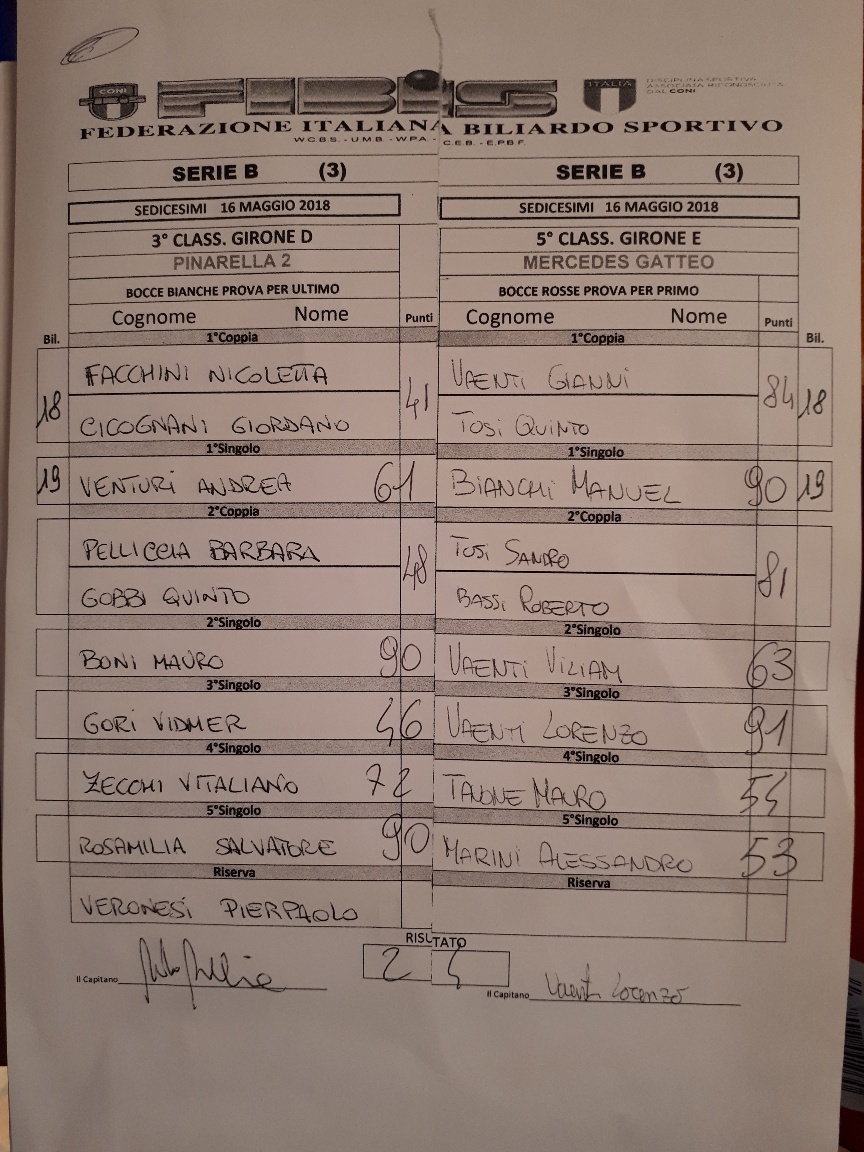 CONI
FIBiS
ITALIA
DISCIPLINA SPORTIVA
ASSOCIATA RICONOSCIUTA
DAL CONI
FEDERAZIONE ITALIANA BILIARDO SPORTIVO
W.C.B.S. - U.M.B. - W.P.A. - C.E.B. - E.P.B.F.
SERIE B (3)
SEDICESIMI 16 MAGGIO 2018
3° CLASS. GIRONE D
PINARELLA 2
BOCCE BIANCHE PROVA PER ULTIMO
Cognome Nome Punti
Bil.
1°Coppia
FACCHINI NICOLETTA
18 41
CICOGNANI GIORDANO
1°Singolo
19 VENTURI ANDREA 61
2°Coppia
PELLICCIA BARBARA
48
GOBBI QUINTO
2°Singolo
BONI MAURO 90
3°Singolo
GORI VIDMER 46
4°Singolo
ZECCHI VITALIANO 72
5°Singolo
ROSAMILIA SALVATORE 90
Riserva
VERONESI PIERPAOLO
SERIE B (3)
SEDICESIMI 16 MAGGIO 2018
5° CLASS. GIRONE E
MERCEDES GATTEO
BOCCE ROSSE PROVA PER PRIMO
Cognome Nome Punti
Bil.
1°Coppia
VAENTI GIANNI
84 18
TOSI QUINTO
1°Singolo
BIANCHI MANUEL 90 19
2°Coppia
TOSI SANDRO
81
BASSI ROBERTO
2°Singolo
VAENTI VILIAM 63
3°Singolo
VAENTI LORENZO 91
4°Singolo
MAURO
5°Singolo
MARINI ALESSANDRO 53
Riserva
RISULTATO
2
Il Capitano
Il Capitano Vaenti Lorenzo